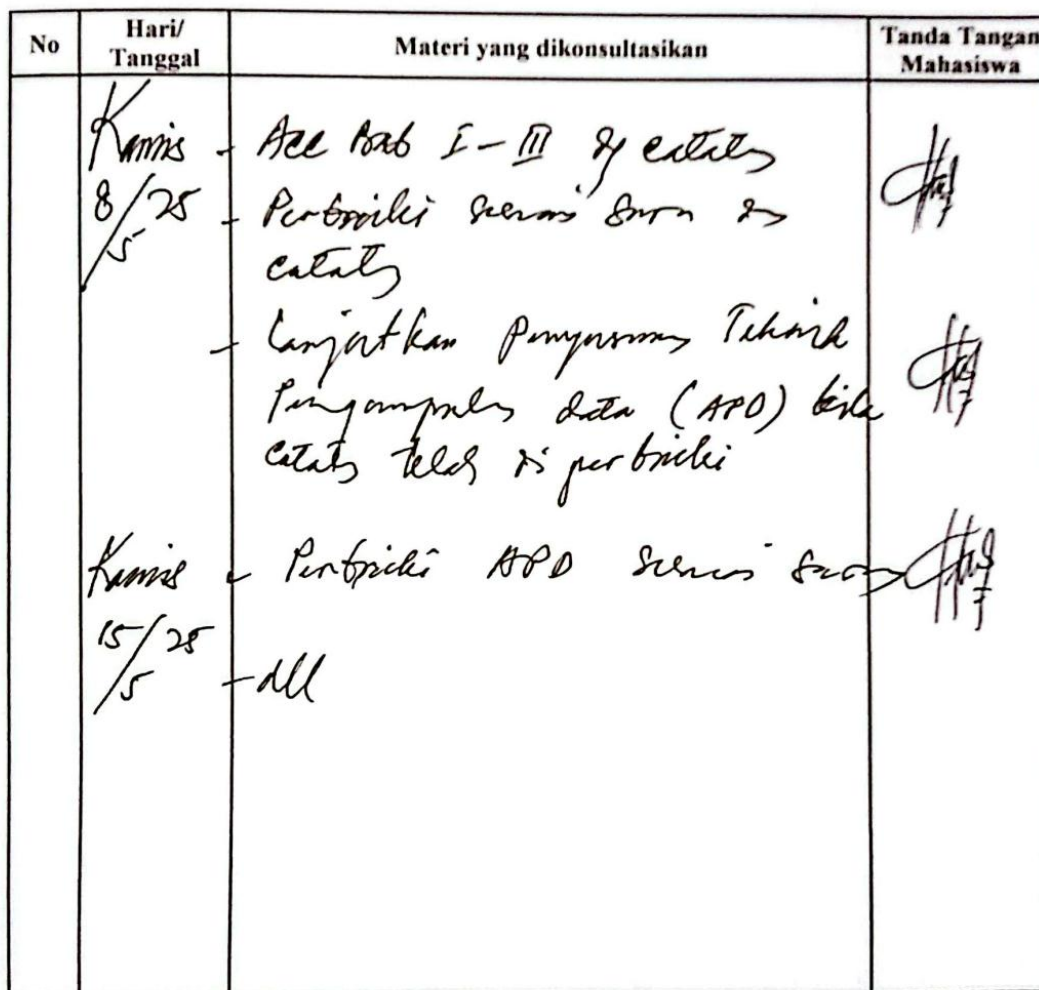 No
Hari/
Tanggal
Materi yang dikonsultasikan
Tanda Tangan
Mahasiswa
Kamis
8/5/25
- Acc Bab I - III dg catatan
- Perbaiki sesuai saran dan
catatan
- Lanjutkan penyusunan Teknik
Pengumpulan data (APD) bila
catatan telah di perbaiki
Kamis
15/5/25
- Perbaiki APD sesuai saran
- dll